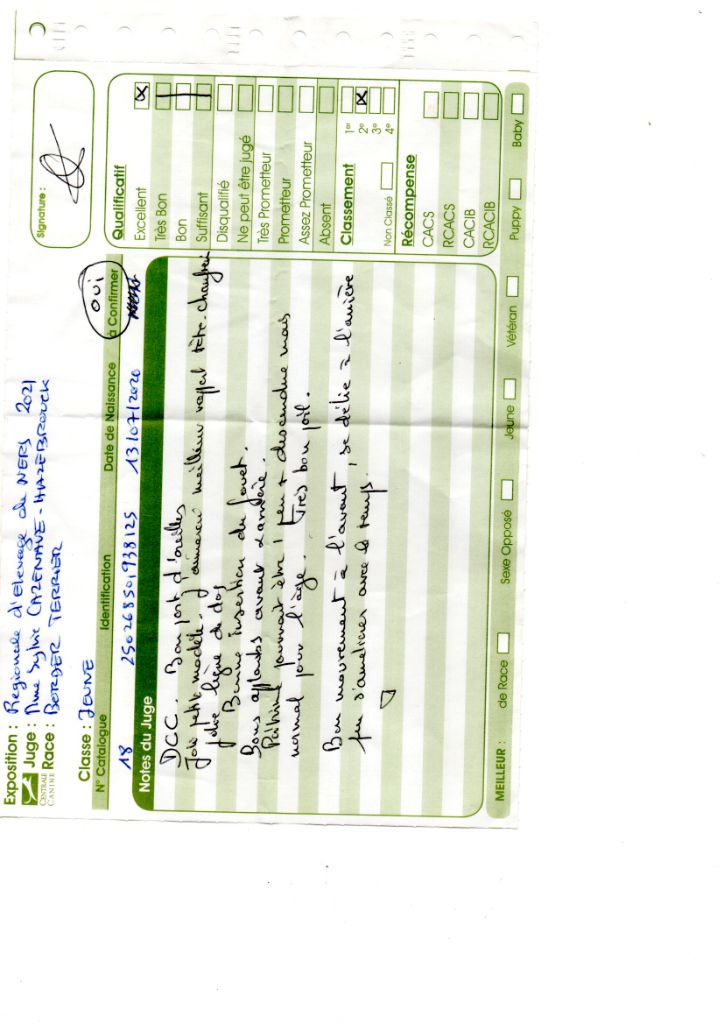 Exposition : Régionale d'Elevage de NERS 2021
Juge : Mme Sylvie CAZENAVE - HAZEBROUCK
CENTRALE CANINE
Race : BORDER TERRIER
Classe : JEUNE
N° Catalogue Identification Date de Naissance à Confirmer
OUI
18 250268501938125 13/07/2020
Notes du Juge
DCC. Bon port d'oreilles
Joli petit modèle. J'aimerai meilleur rapport tête-chanfrein
Jolie ligne de dos
Bonne insertion du fouet.
Bons aplombs avant & arrière.
Poitrine pourrait être 1 peu + descendue mais
normal pour l'âge. Très bon poil.
Bon mouvement à l'avant, se délie à l'arrière
fin s'améliorer avec le temps.
Signature :
Qualificatif
Excellent X
Très Bon
Bon
Suffisant
Disqualifié
Ne peut être jugé
Très Prometteur
Prometteur
Assez Prometteur
Absent
Classement
1er
2e X
3e
4e
Non Classé
Récompense
CACS
RCACS
CACIB
RCACIB
MEILLEUR : de Race Sexe Opposé Jeune Vétéran Puppy Baby